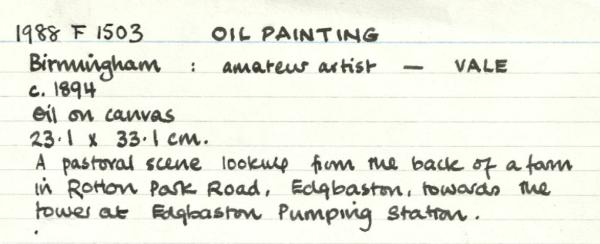 1988 F 1503 OIL PAINTING
Birmingham : amateur artist — VALE
c. 1894
Oil on canvas
23.1 x 33.1 cm.
A pastoral scene looking from the back of a farm
in Rotton Park Road, Edgbaston, towards the
tower at Edgbaston Pumping Station.